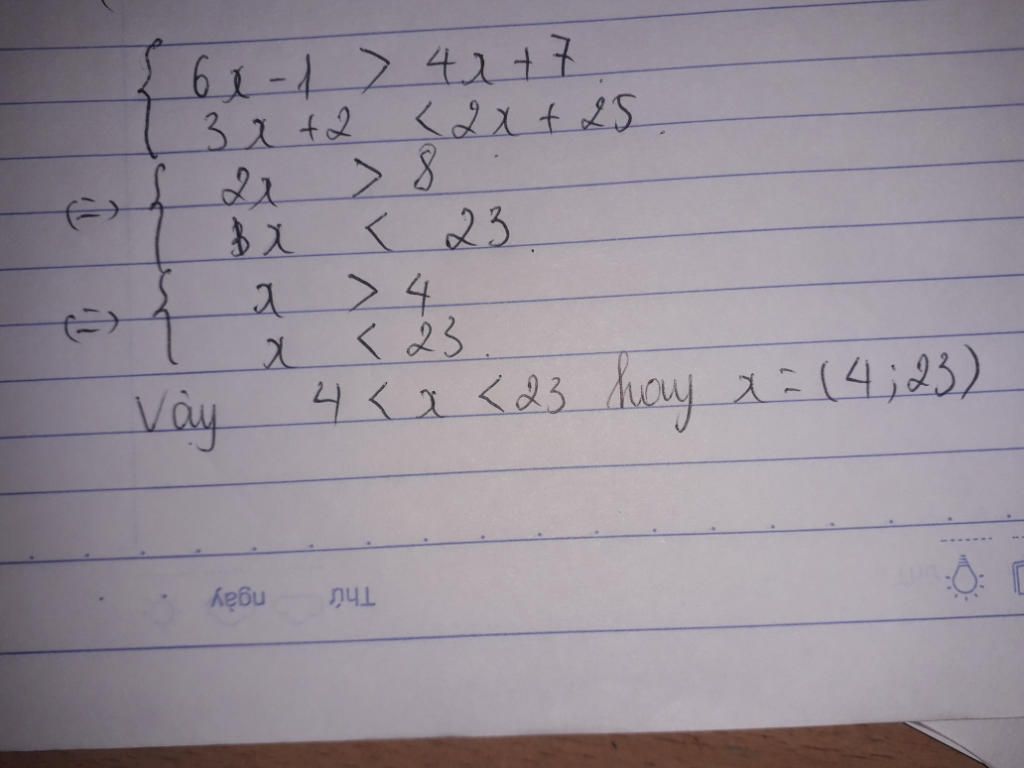 { 6x - 1 > 4x + 7.
3x + 2 < 2x + 25.
(=) { 2x > 8
x < 23.
(=) { x > 4
x < 23.
Vậy 4 < x < 23 hay x = (4; 23)
Thứ ngày